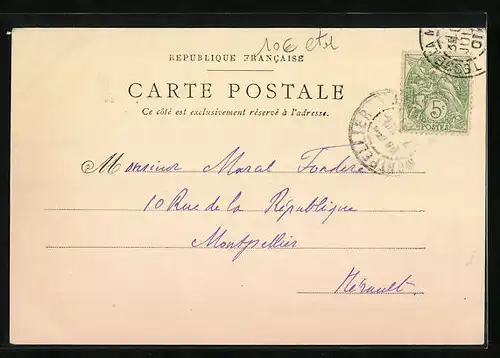 10€
REPUBLIQUE FRANÇAISE
CARTE POSTALE
Ce côté est exclusivement réservé à l'adresse.
5
POSTES
MONTPELLIER
Monsieur Maral Fondère
10 Rue de la République
Montpellier
Hérault